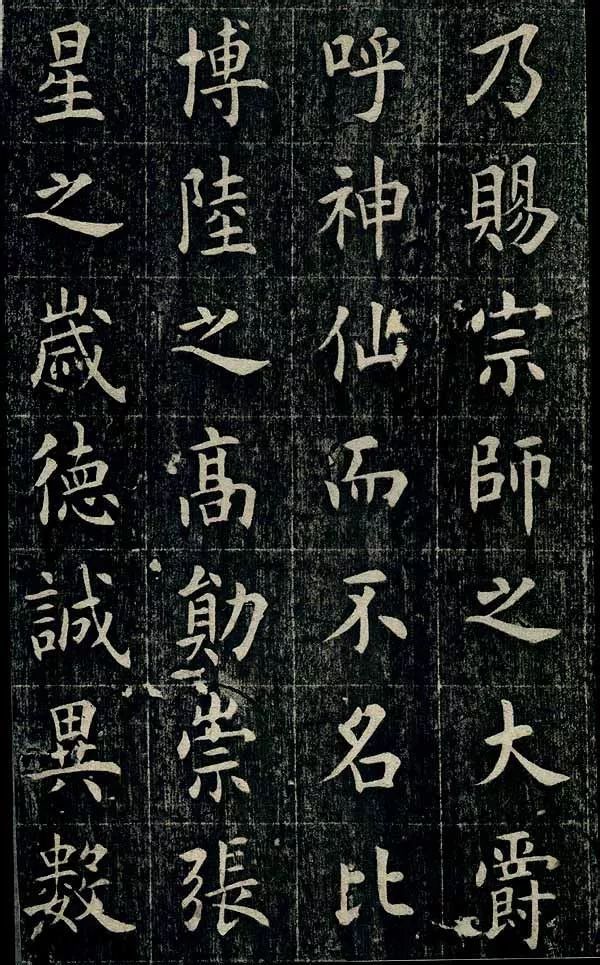 乃賜宗師之大爵
呼神仙而不名比
博陸之高勛崇張
星之歲德誠異數